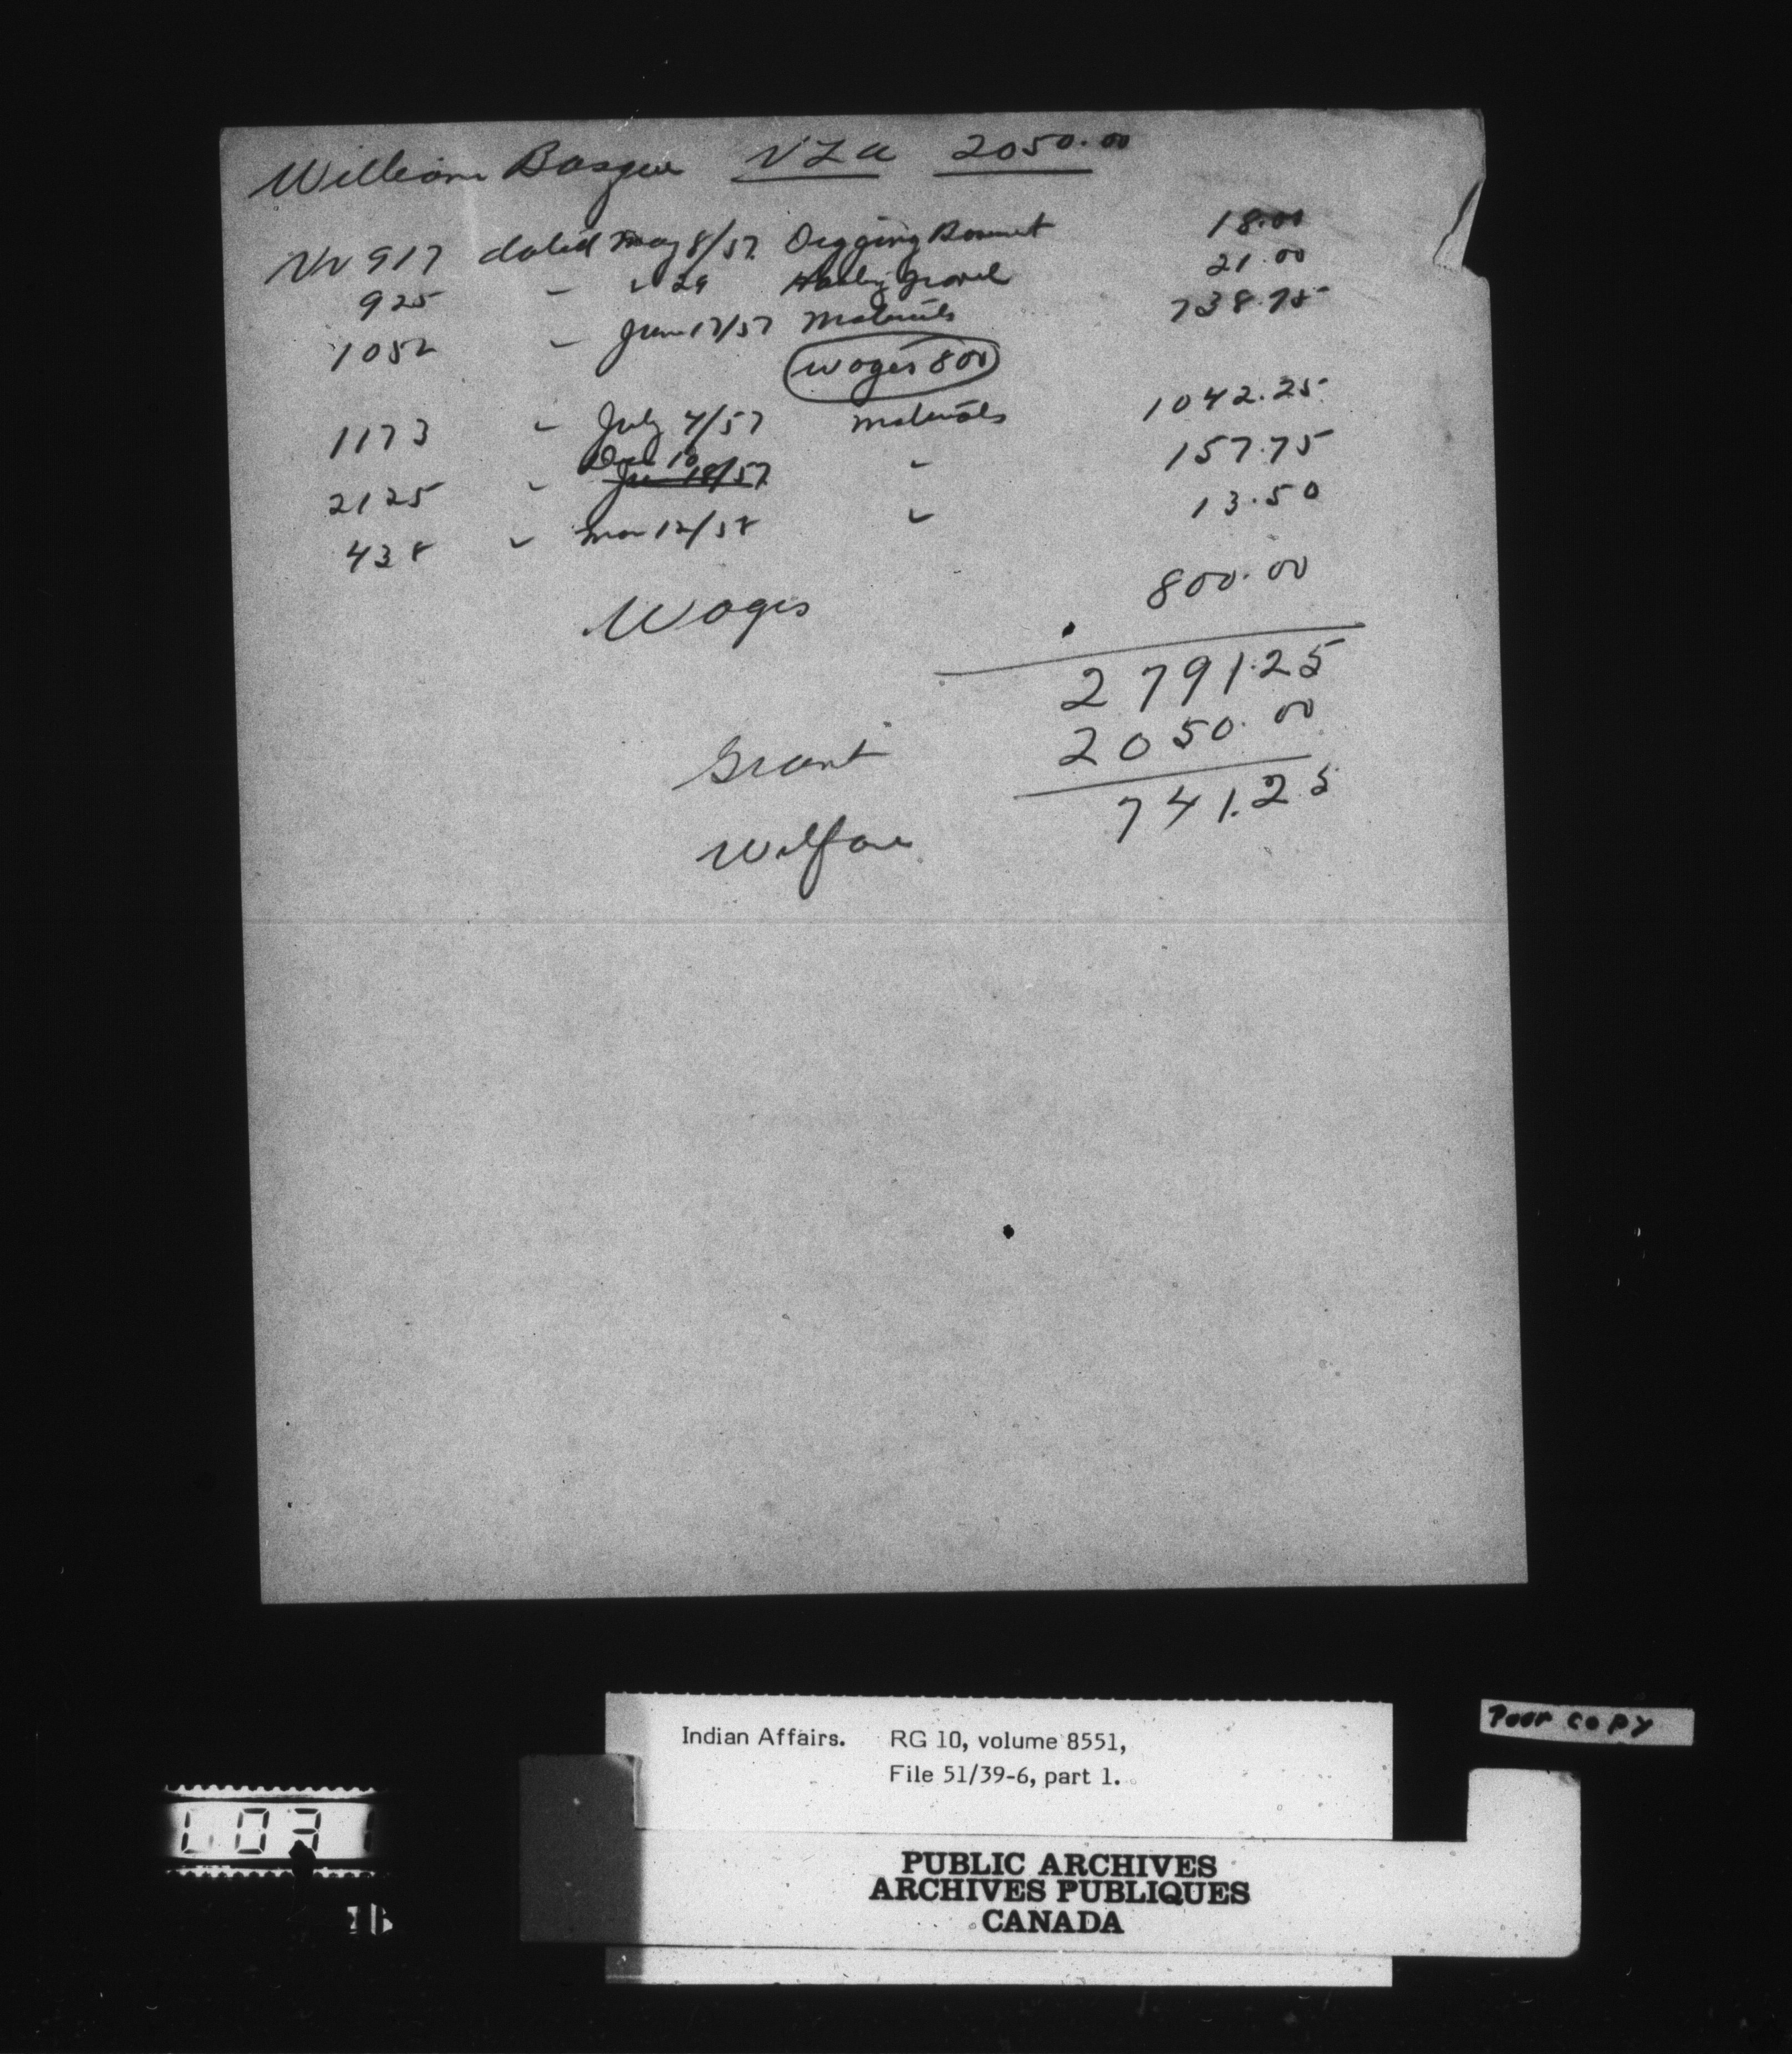 William Basque VLA 2050.00
Nr 917 dated May 8/57 Digging Basmet 18.00
925 " " 29 Hauling gravel 21.00
1052 " June 17/57 Materials 738.75
Wages 800
1173 " July 4/57 Materials 1042.25
Dec 10
2125 " 18/57 " 157.75
438 " Mar 12/58 " 13.50
Wages 800.00
2791.25
Grant 2050.00
Welfare 741.25
Poor copy
Indian Affairs. RG 10, volume 8551,
File 51/39-6, part 1.
PUBLIC ARCHIVES
ARCHIVES PUBLIQUES
CANADA